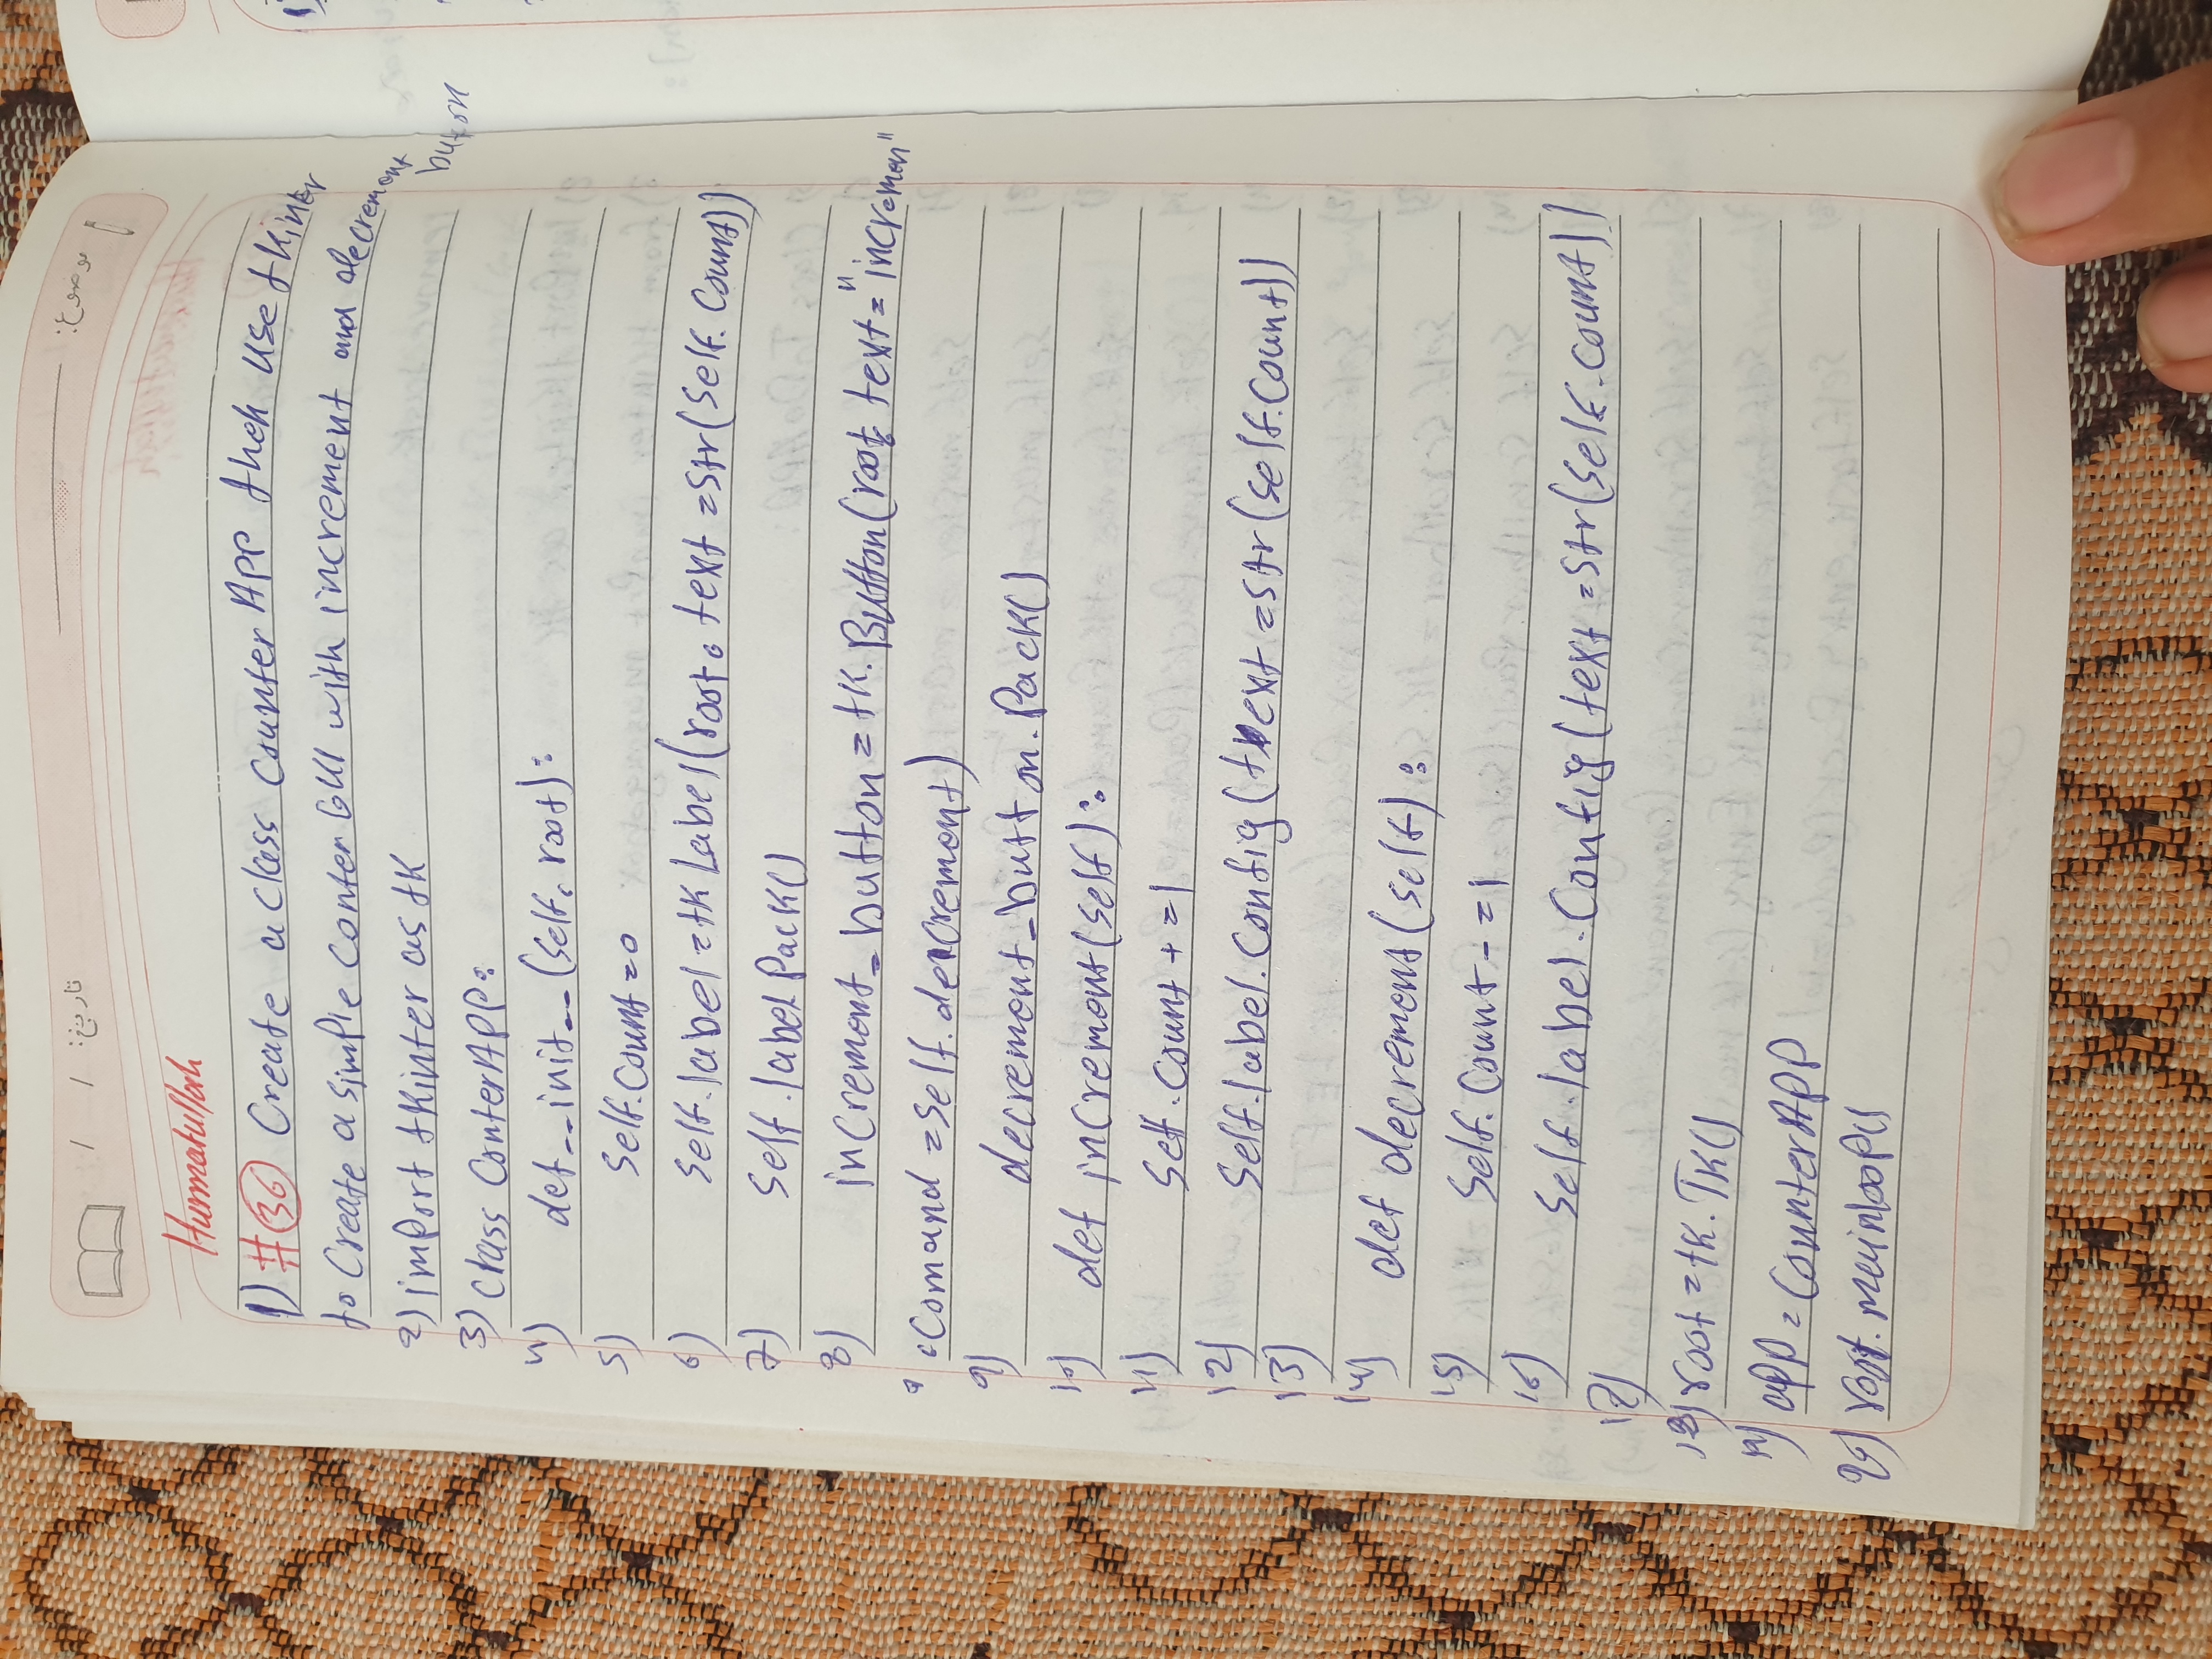 موضوع:
تاریخ: / /
Hurmatullah
1) #36 Create a class Counter App then use tkinter
to Create a simple Conter GUI with increment and decrement
button
2) import tkinter as tk
3) class ConterAPP:
4) def __init__(self, root):
5) Self.Count=0
6) Self.label=tk Label(root, text=Str(Self.Count))
7) Self.label Pack()
8) increment_button=tk.Button(root, text="incremen"
,Comand=Self.decrement)
9) decrement_button.Pack()
10) def increment(self):
11) Self.Count +=1
12) Self.label.Config(text=str(self.Count))
13)
14) def decrement(self):
15) Self.Count-=1
16) Self.label.Config(text=Str(Self.count))
17)
18) root=tk.TK()
19) app=CounterAPP
20) root.mainloop()